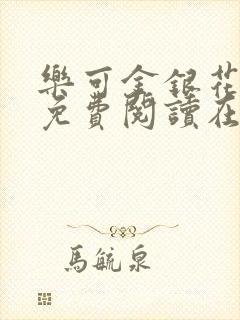 樂可金銀花
免費閱讀在
馬毓泉